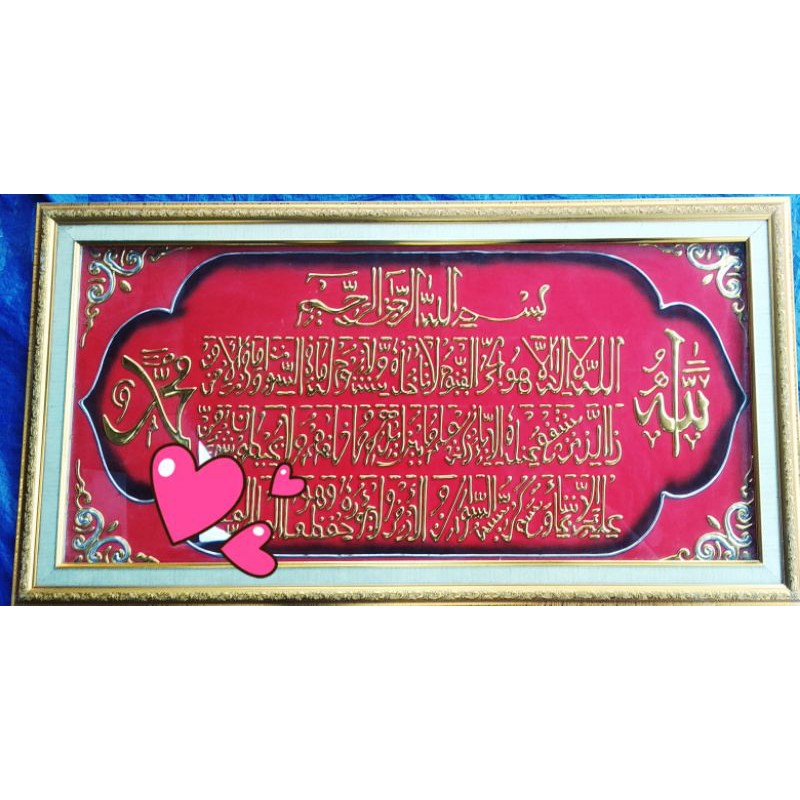 بسم الله الرحمن الرحيم
الله
الله لا إله إلا هو الحي القيوم لا تأخذه سنة ولا نوم له ما في السموات وما في الأرض من
محمد
ذا الذي يشفع عنده إلا بإذنه يعلم ما بين أيديهم وما خلفهم ولا يحيطون بشيء من
علمه إلا بما شاء وسع كرسيه السموات والأرض ولا يؤده حفظهما وهو العلي